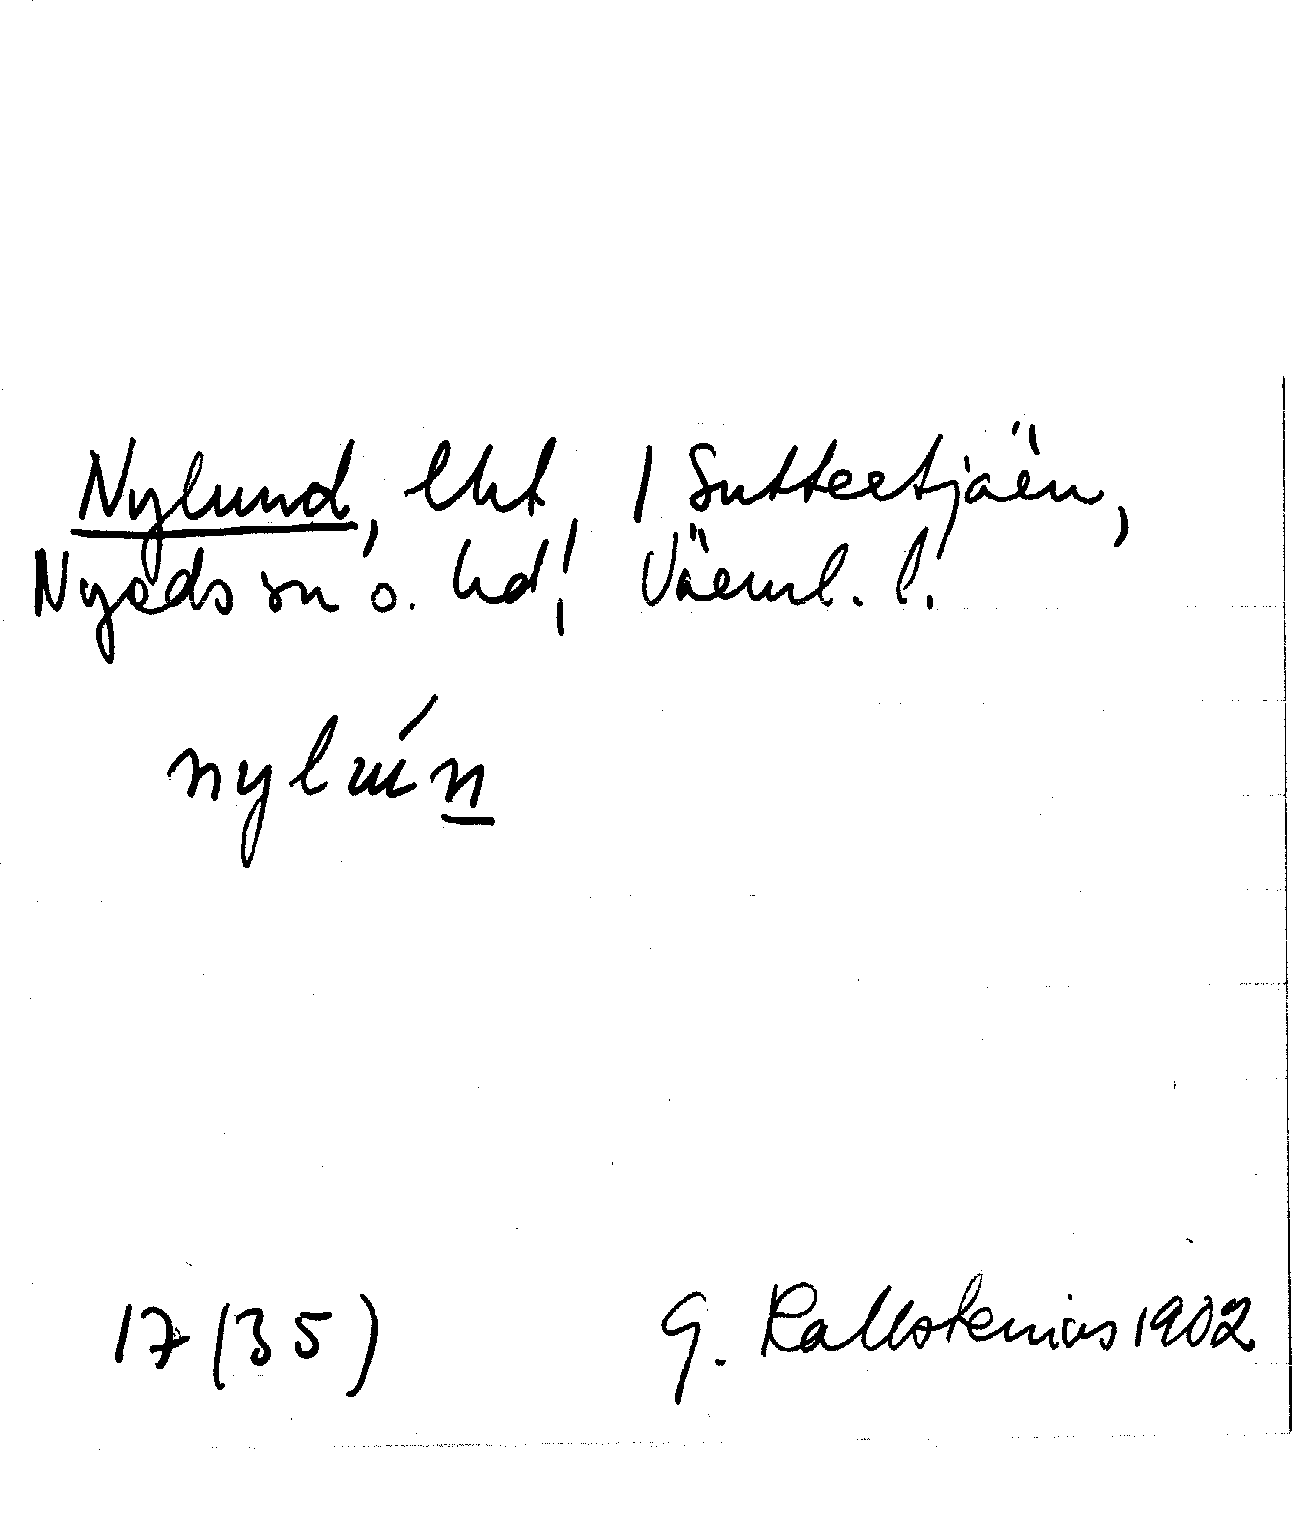 Nylund, lht, 1 Suttertjärn,
Nyeds sn o. hd, Värml. l.
nylún
17 (35) G. Kallstenius 1902